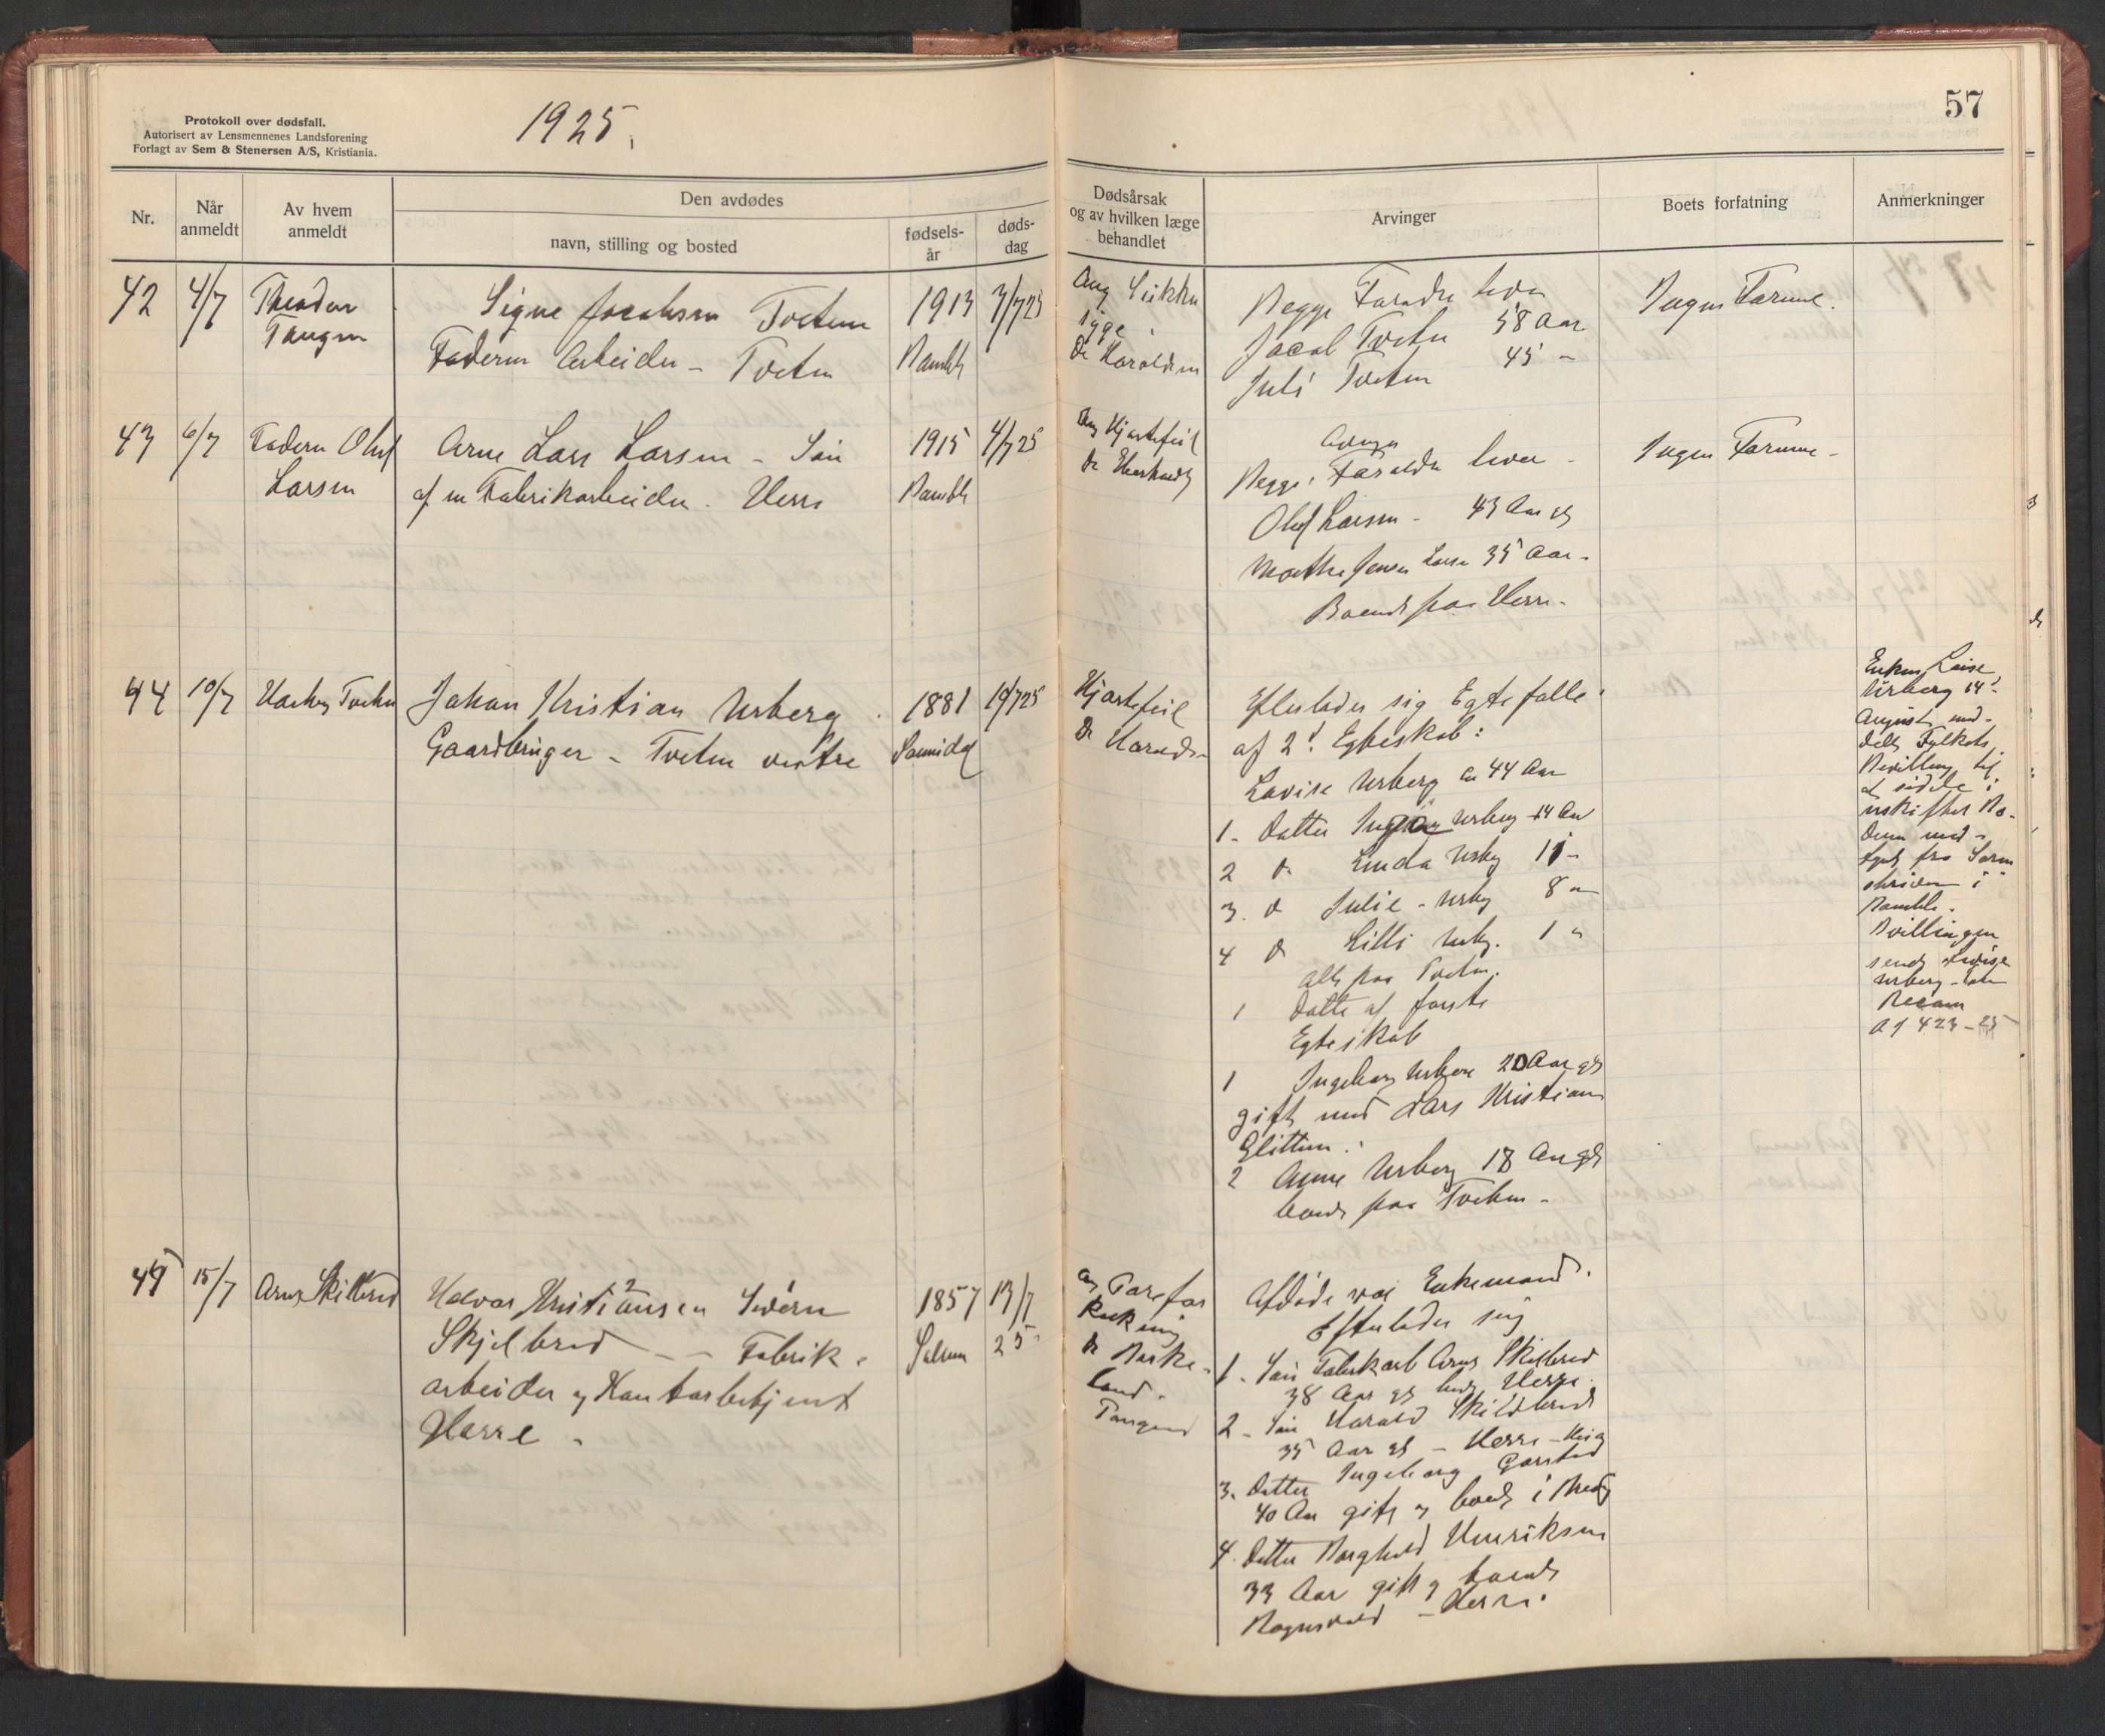 Protokoll over dødsfall.
Autorisert av Lensmennenes Landsforening
Forlagt av Sem & Stenersen A/S, Kristiania.
1925.
57
Nr.
Når anmeldt
Av hvem anmeldt
Den avdødes
navn, stilling og bosted
fødsels-år
døds-dag
Dødsårsak
og av hvilken læge
behandlet
Arvinger
Boets forfatning
Anmerkninger
42 4/7 Theodor
Tangen
Signe Jacobsen Tveten
Faderen Arbeider - Tveten
1913
Bamble
3/7 25
Ang Sukker
syge.
Dr Haraldsen
Begge Foreldre lever
Jacob Tveten 58 Aar
Juli Tveten 45 -
Ingen Formue.
43 6/7 Faderen Oluf
Larsen
Arne Lars Larsen - Søn
af en Fabrikarbeider. Herre
1915
Bamble
4/7 25
Ang Hjertefeil
Dr
Begge Foreldre lever -
Oluf Larsen - 43 Aar gl
Marthe Jensen Larsen 35 Aar -
Boende paa Herre.
Ingen Formue -
44 10/7 Tveten
Johan Kristian Urberg
Gaardbruger - Tveten vestre
1881
Sannidal
10/7 25
Hjertefeil
Dr
Efterlader sig Egtefælle
af 2. Egteskab:
Lovise Urberg 44 Aar
1 - Datter Urberg 14 Aar
2 Do Linda Urberg 11 -
3. Do Julie - Urberg 8 -
4 Do Lilli Urberg. 1 "
alle paa Tveten.
1 Datter af første
Egteskab
1 Ingeborg Urberg 20 Aar gl
gift med Lars Kristian
2 Anne Urberg 18 Aar gl
boende paa Tveten -
Enken Lovise
Urberg 14
August med-
delt Fylkets
Bevilling til
at sidde i
uskiftet Bo.
Denne med-
fra Soren
skriveren i
Bamble.
Bevillingen
sendt Lovise
Urberg
423 - 25
45 15/7 Arne Skilbred
Halvor Kristiansen
Skjelbred - - Fabrik
arbeider og Kontorbetjent
Herre -
1857
Solum
13/7
25
Dr
land.
Tangen
Afdøde var Enkemand.
Efterlader sig
1 - Søn Fabrikarb Arne Skilbred
38 Aar gl Herre.
2 - Søn Harald Skilbred
35 Aar gl - Herre -
3. Datter Ingeborg
40 Aar gift og boende i
4. Datter Borghild Henriksen
33 Aar gift og boende
- Herre.